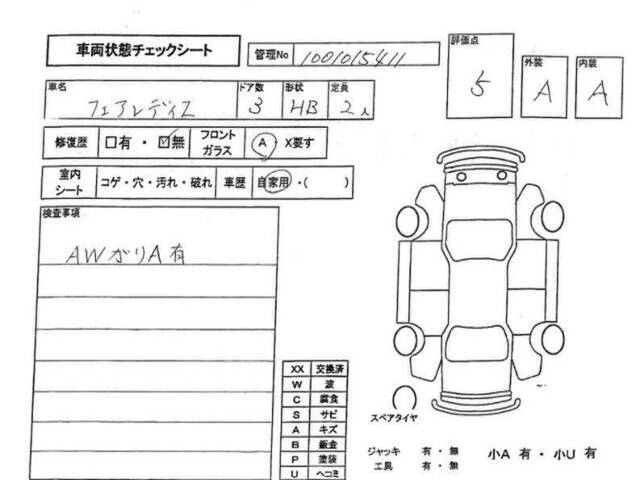 車両状態チェックシート
管理No 1001015411
評価点 5
外装 A
内装 A
車名 フェアレディZ
ドア数 3
形状 HB
定員 2人
修復歴 □有・☑無
フロントガラス A・X要す
室内シート コゲ・穴・汚れ・破れ
車歴 自家用・( )
検査事項
AWガリA有
XX 交換済
W 波
C 腐食
S サビ
A キズ
B 鈑金
P 塗装
U ヘコミ
スペアタイヤ
ジャッキ 有・無
工具 有・無
小A 有・小U 有